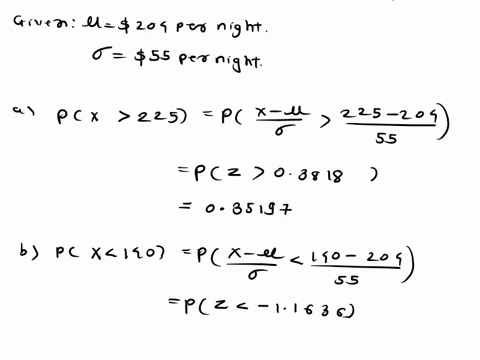 Given: μ = $ 204 per night.
σ = $ 55 per night.
a) P(x > 225) = P( (x-μ)/σ > (225-204)/55 )
= P(z > 0.3818 )
= 0.35197
b) P( X < 140) = P( (X-μ)/σ < (140-204)/55 )
= P(z < -1.1636)